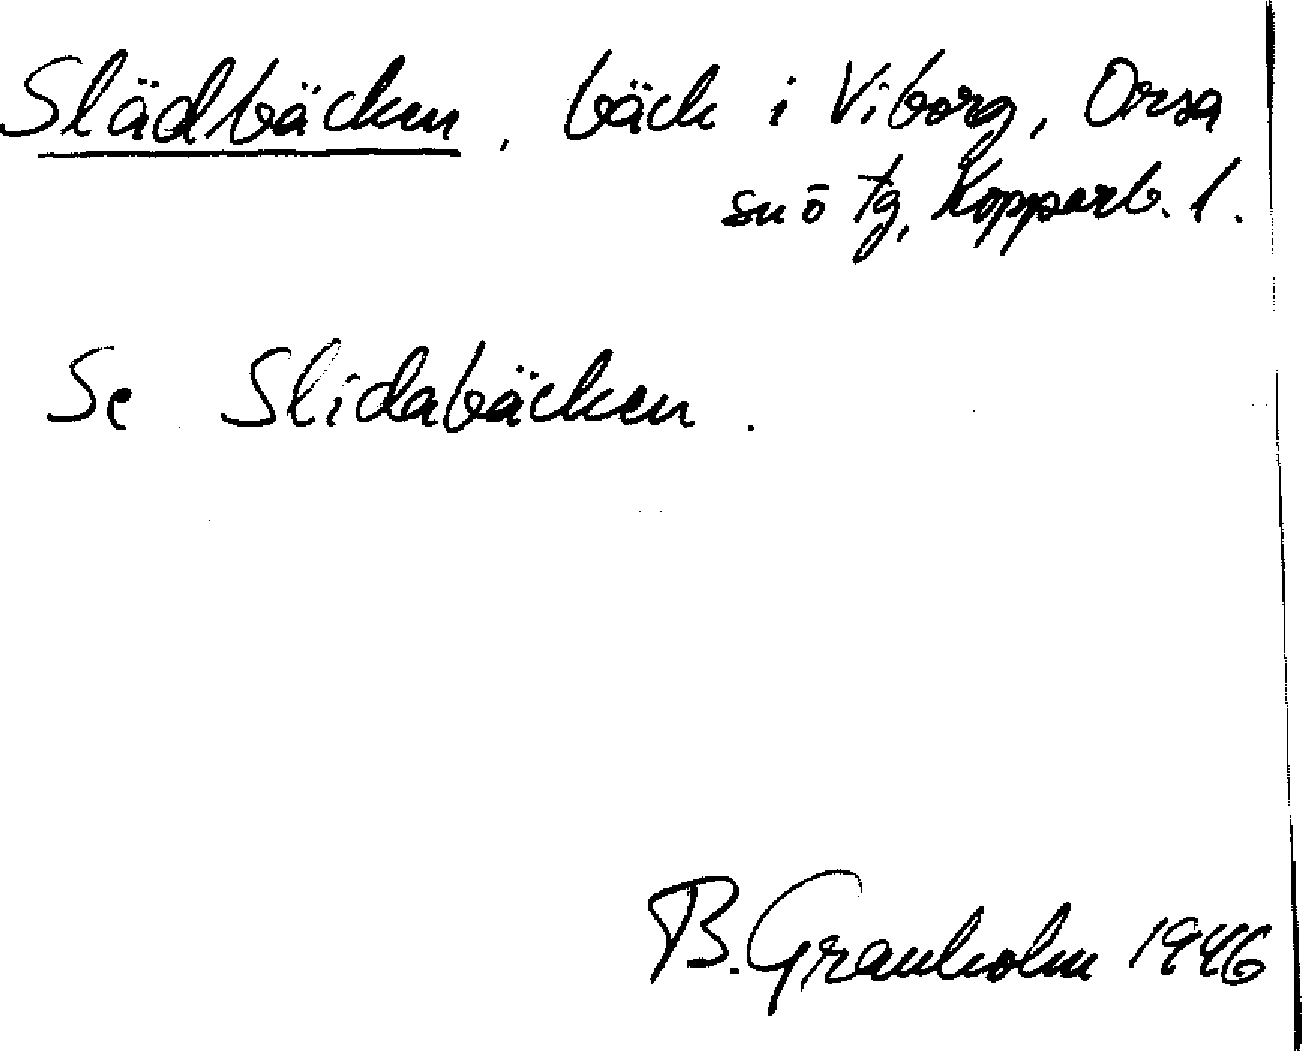 Slädbäcken, bäck i Viborg, Orsa
sn ö tg, Kopparb. l.
Se Slidabäcken.
B. Granholm 1946